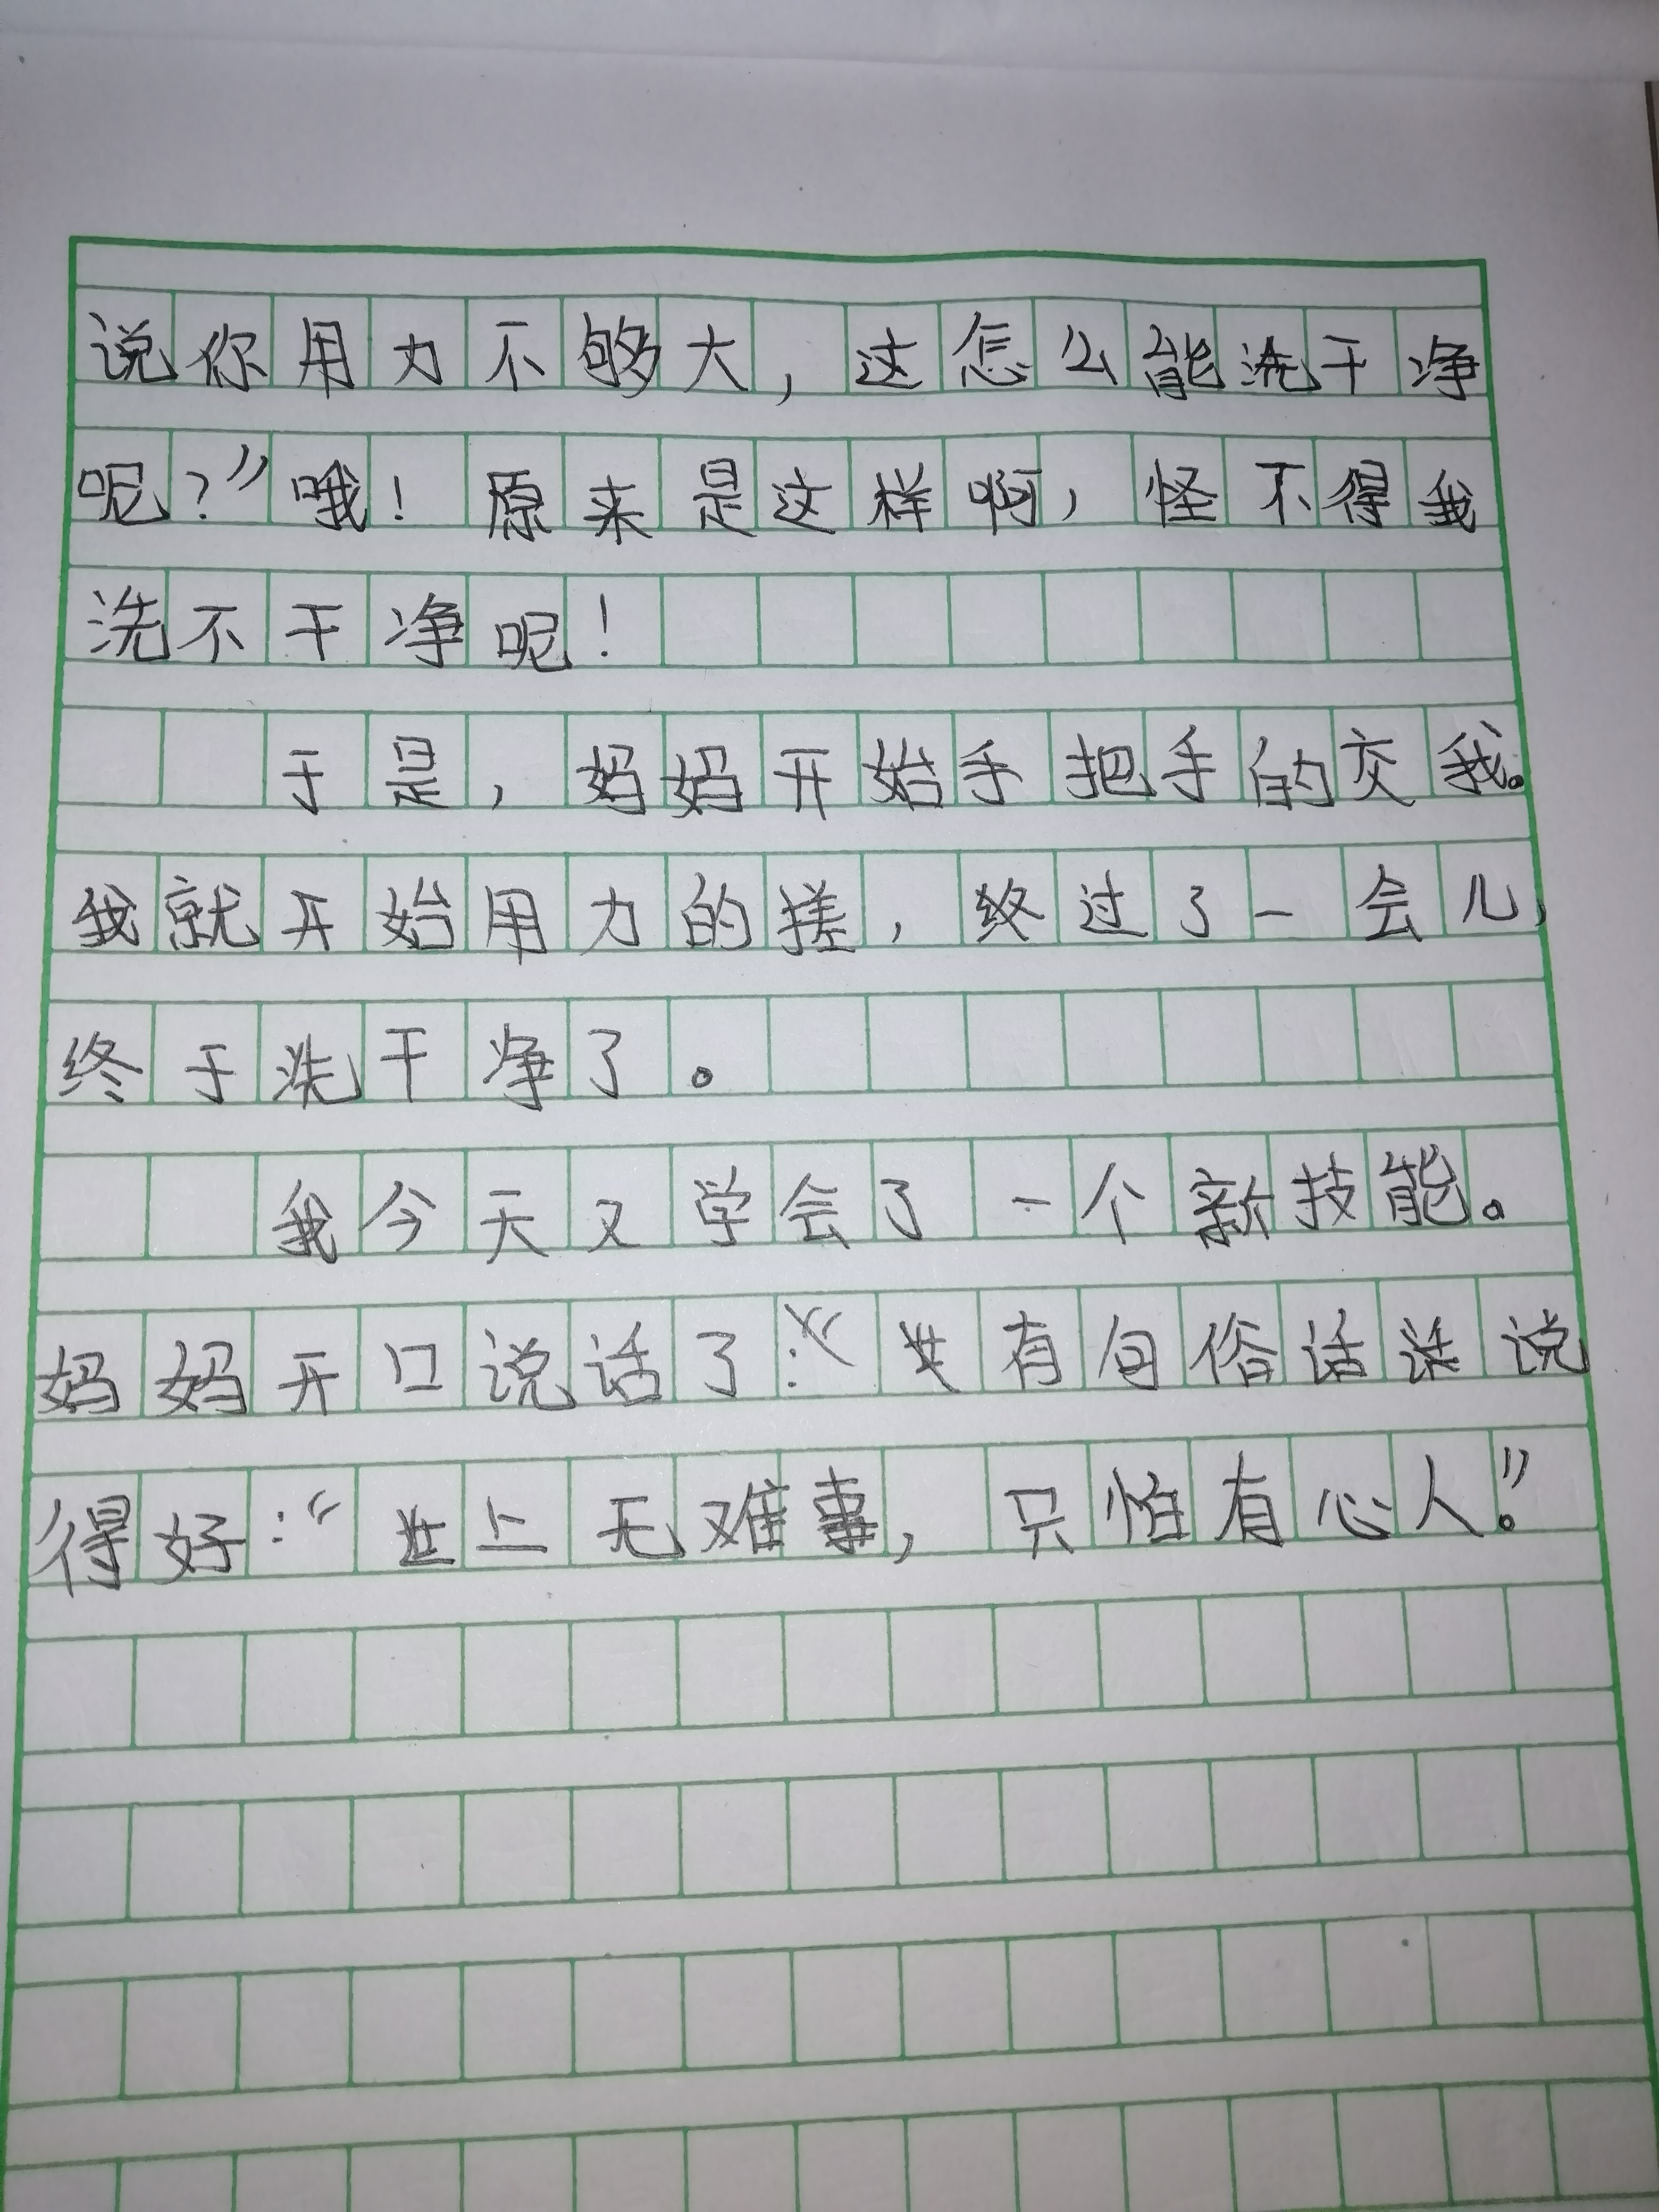 说你用力不够大，这怎么能洗干净
呢？”哦！原来是这样啊，怪不得我
洗不干净呢！
于是，妈妈开始手把手的交我。
我就开始用力的搓，终过了一会儿，
终于洗干净了。
我今天又学会了一个新技能。
妈妈开口说话了：“有句俗话说
得好：“世上无难事，只怕有心人。”